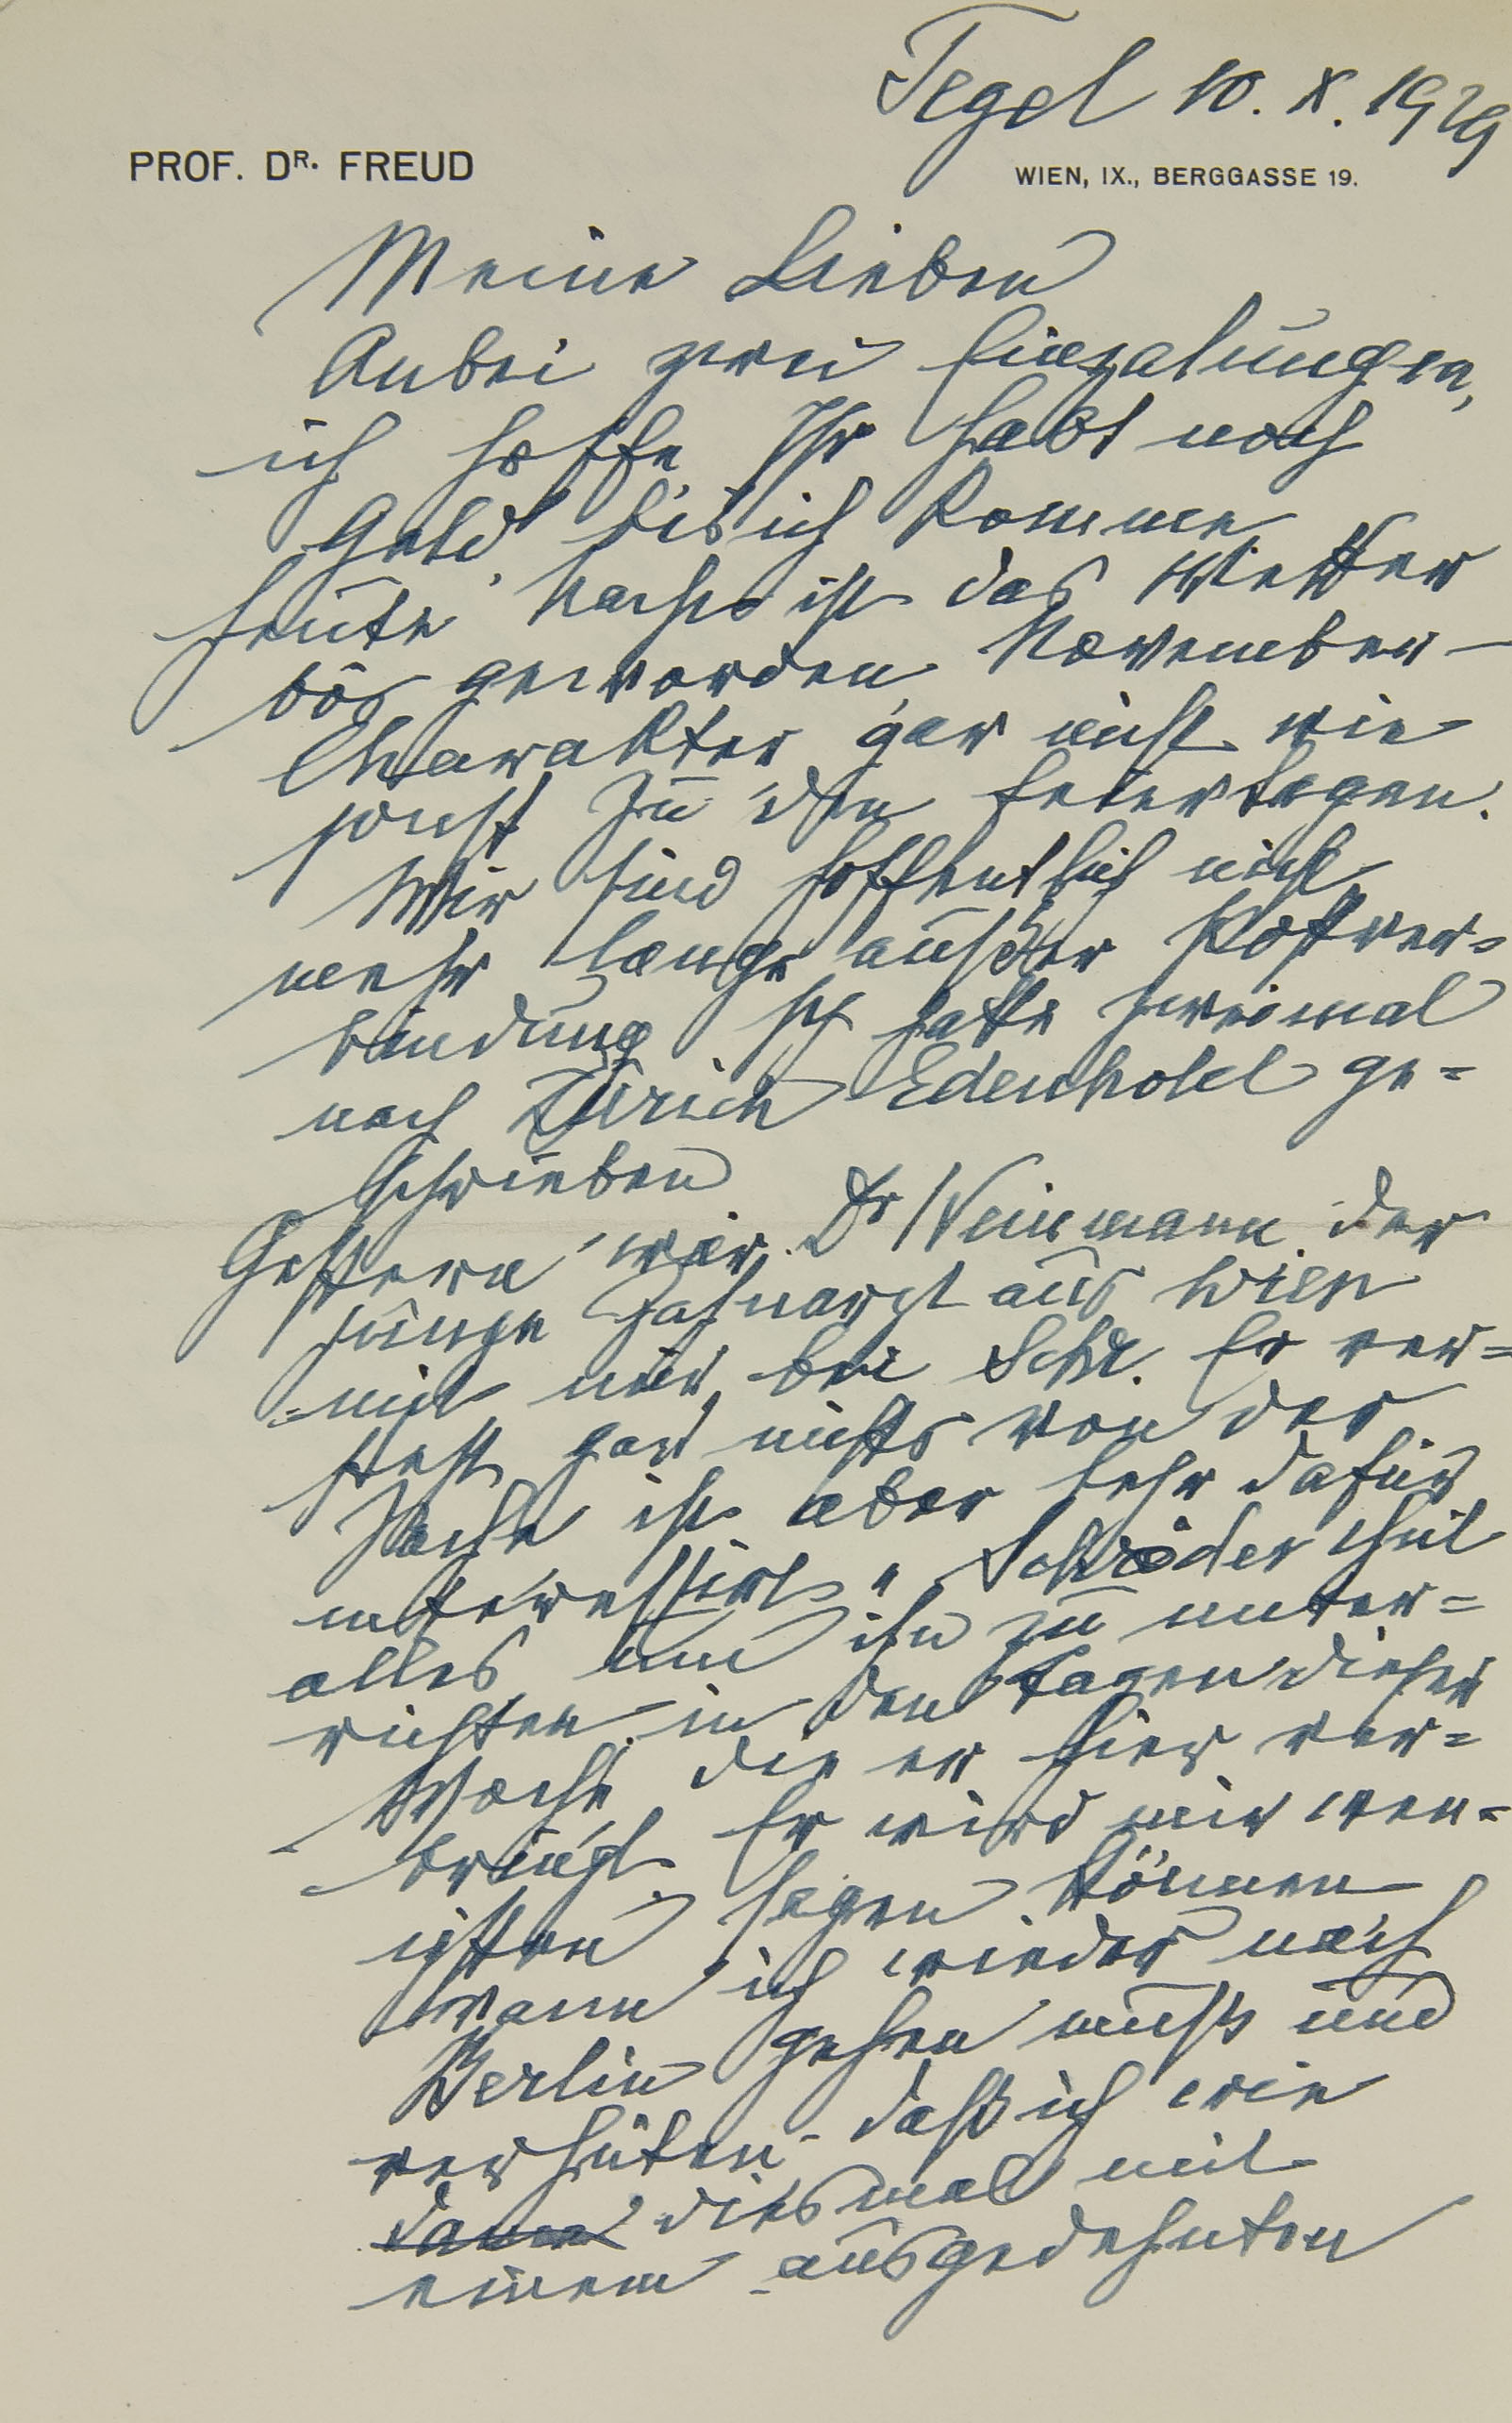 Tegel 10. X. 1929
PROF. DR. FREUD
WIEN, IX., BERGGASSE 19.
Meine Lieben
Anbei zwei Einzalungen,
ich hoffe Ihr habt noch
Geld, bis ich komme
Heute Nachts ist das Wetter
bös geworden, November-
Charakter gar nicht wie
sonst zu den Feiertagen.
Wir sind hoffentlich nicht
mehr lange außer Postver=
bindung Ich hatte zweimal
nach Zürich Edenhotel ge=
schrieben
Gestern war Dr Weinmann der
junge Zahnarzt aus Wien
mit mir bei Schr. Er ver=
steht gar nichts von der
Sache ist aber sehr dafür
interessirt, Schröder thut
alles um ihn zu unter=
richten in den Tagen dieser
Woche die er hier ver=
bringt. Er wird mir
sagen können
wann ich wieder nach
Berlin gehen muß und
verhüten daß ich wie
diesmal mit
einem ausgedehnten